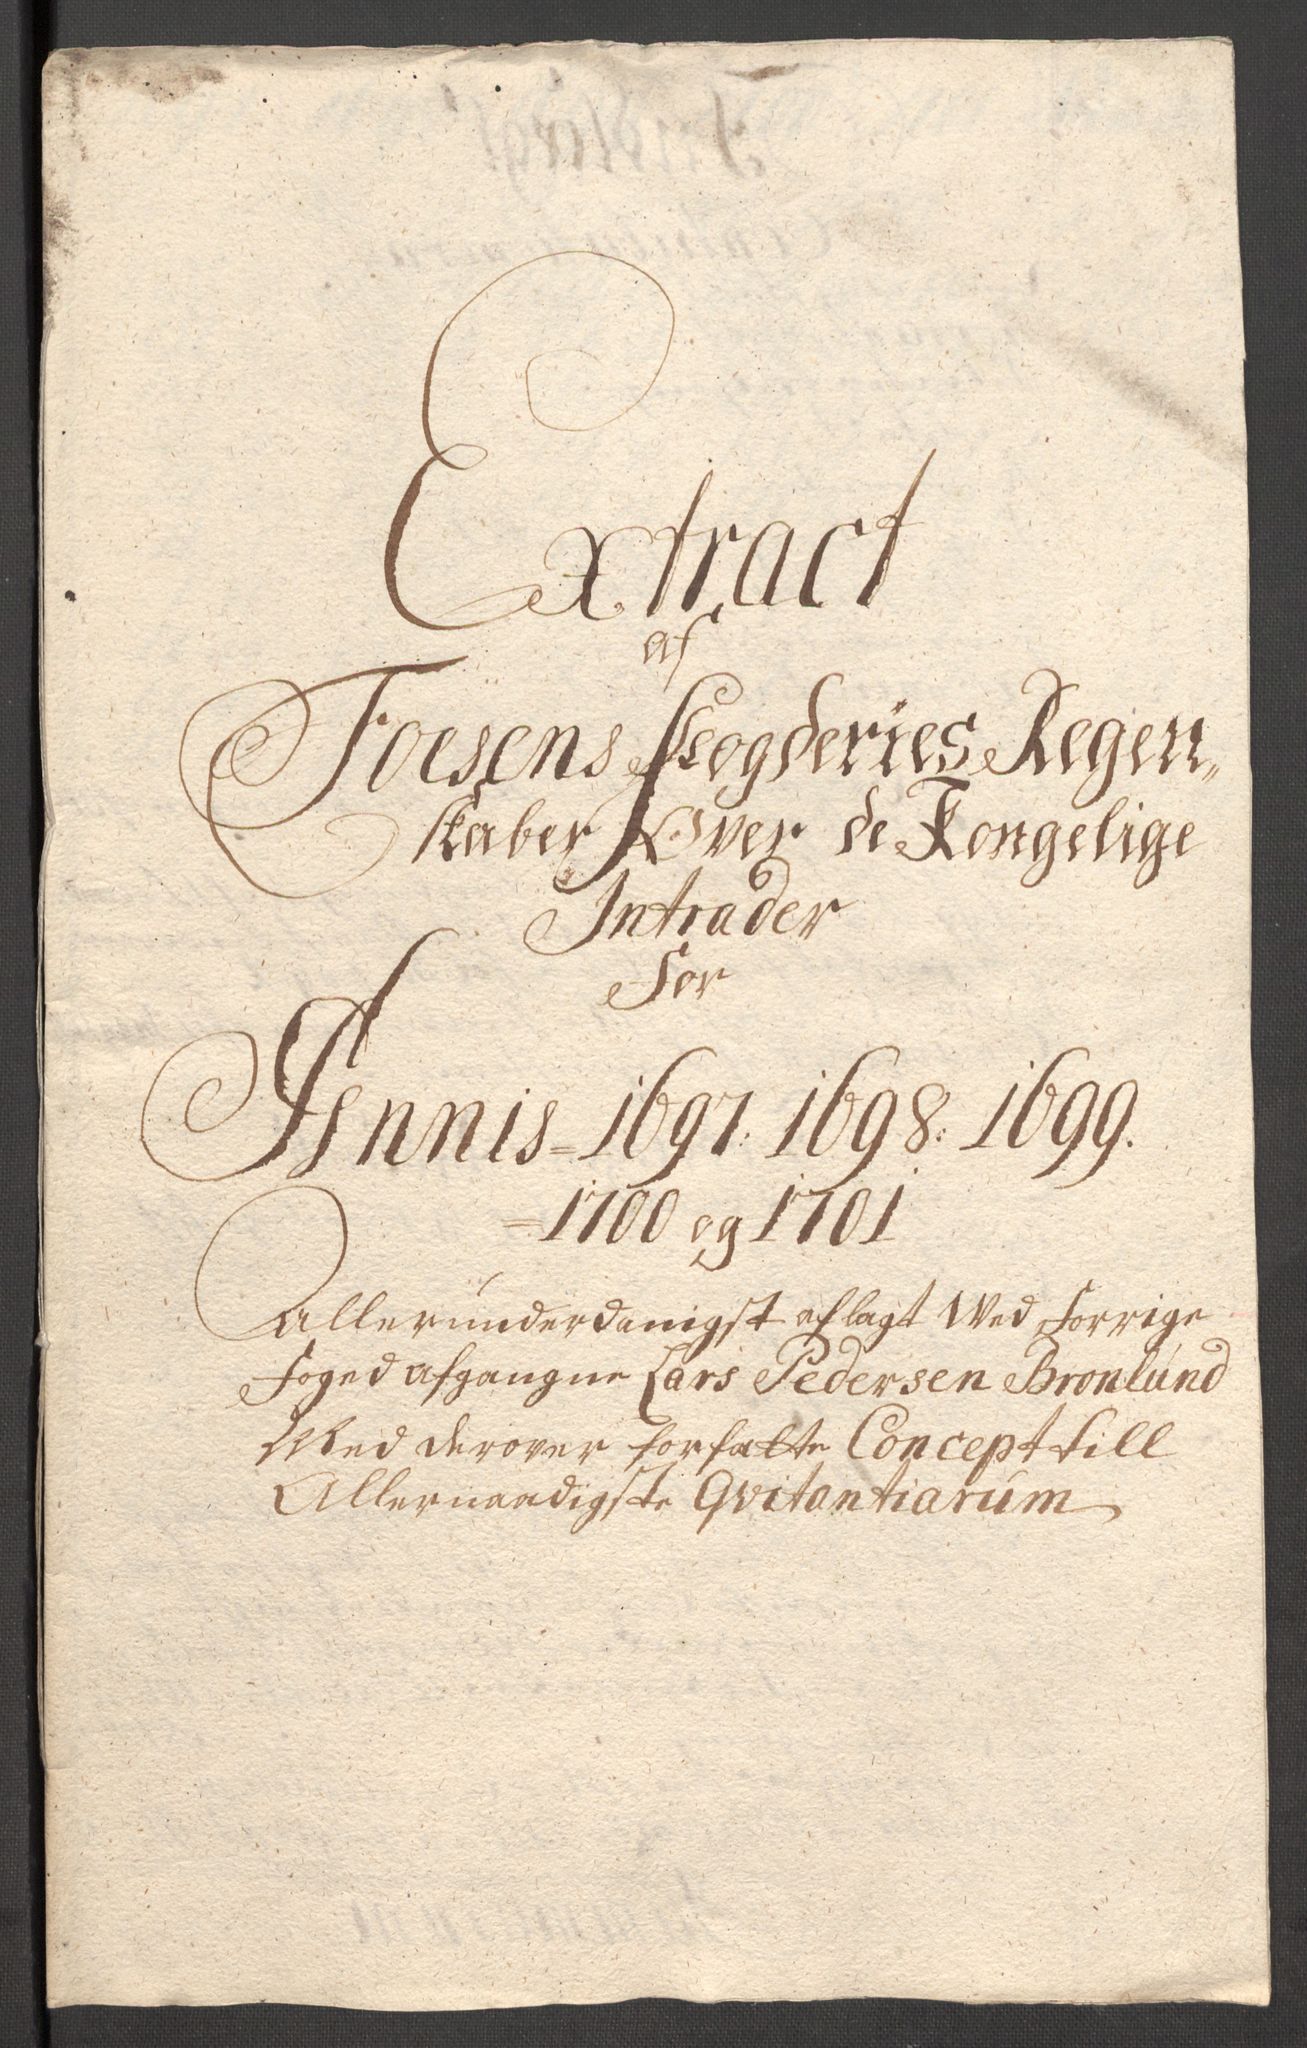 Extract
af
Foesens Fogderies Regen„
skaber Over de Kongelige
Intrader
For
Annis = 1697: 1698: 1699.
= 1700 og 1701
Allerunderdanigst aflagt Ved Forrige
Foged afgangne Lars Pedersen Bronlund
Med derover forfatte Concept till
Allernaadigste Qvitantiarum